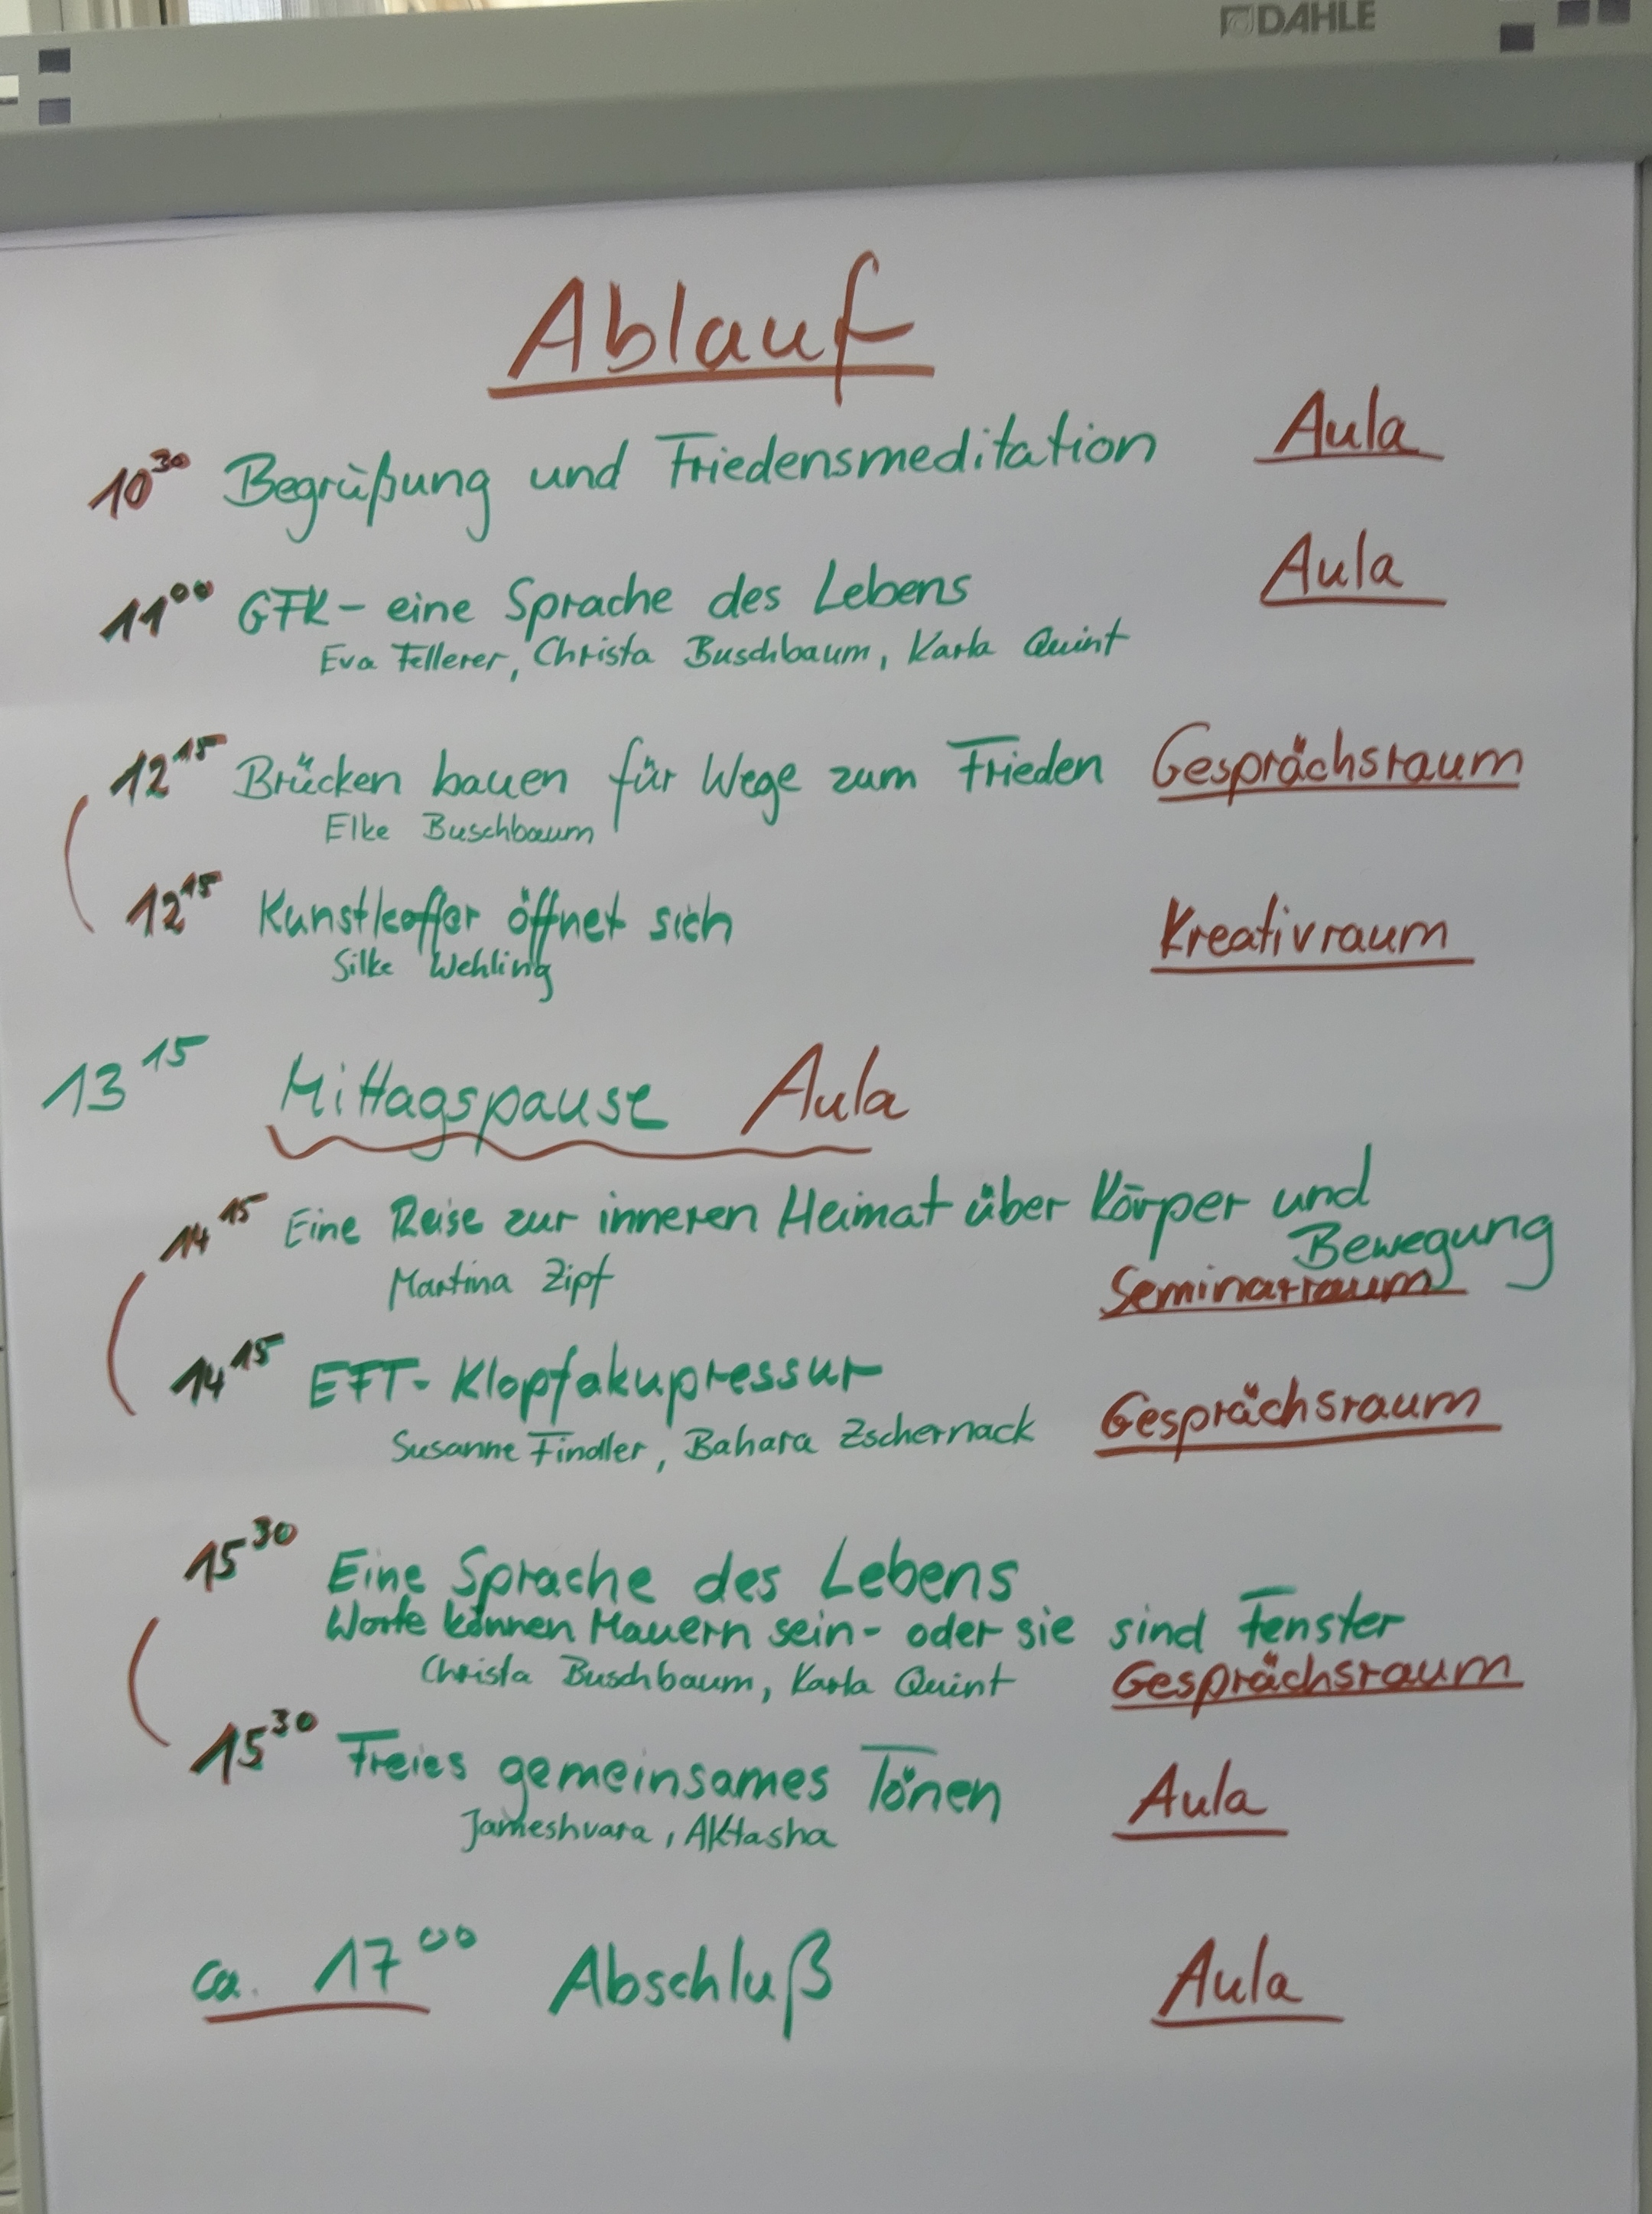 DAHLE
Ablauf
10³⁰ Begrüßung und Friedensmeditation Aula
11⁰⁰ GFK - eine Sprache des Lebens Aula
Eva Fellerer, Christa Buschbaum, Karla Quint
12¹⁵ Brücken bauen für Wege zum Frieden Gesprächsraum
Elke Buschbaum
12¹⁵ Kunstkoffer öffnet sich Kreativraum
Silke Wehling
13¹⁵ Mittagspause Aula
14¹⁵ Eine Reise zur inneren Heimat über Körper und
Bewegung
Martina Zipf Seminarraum
14¹⁵ EFT - Klopfakupressur Gesprächsraum
Susanne Findler, Bahara Zschernack
15³⁰ Eine Sprache des Lebens
Worte können Mauern sein - oder sie sind Fenster
Christa Buschbaum, Karla Quint Gesprächsraum
15³⁰ Freies gemeinsames Tönen Aula
Jameshvara, Aktasha
ca. 17⁰⁰ Abschluß Aula